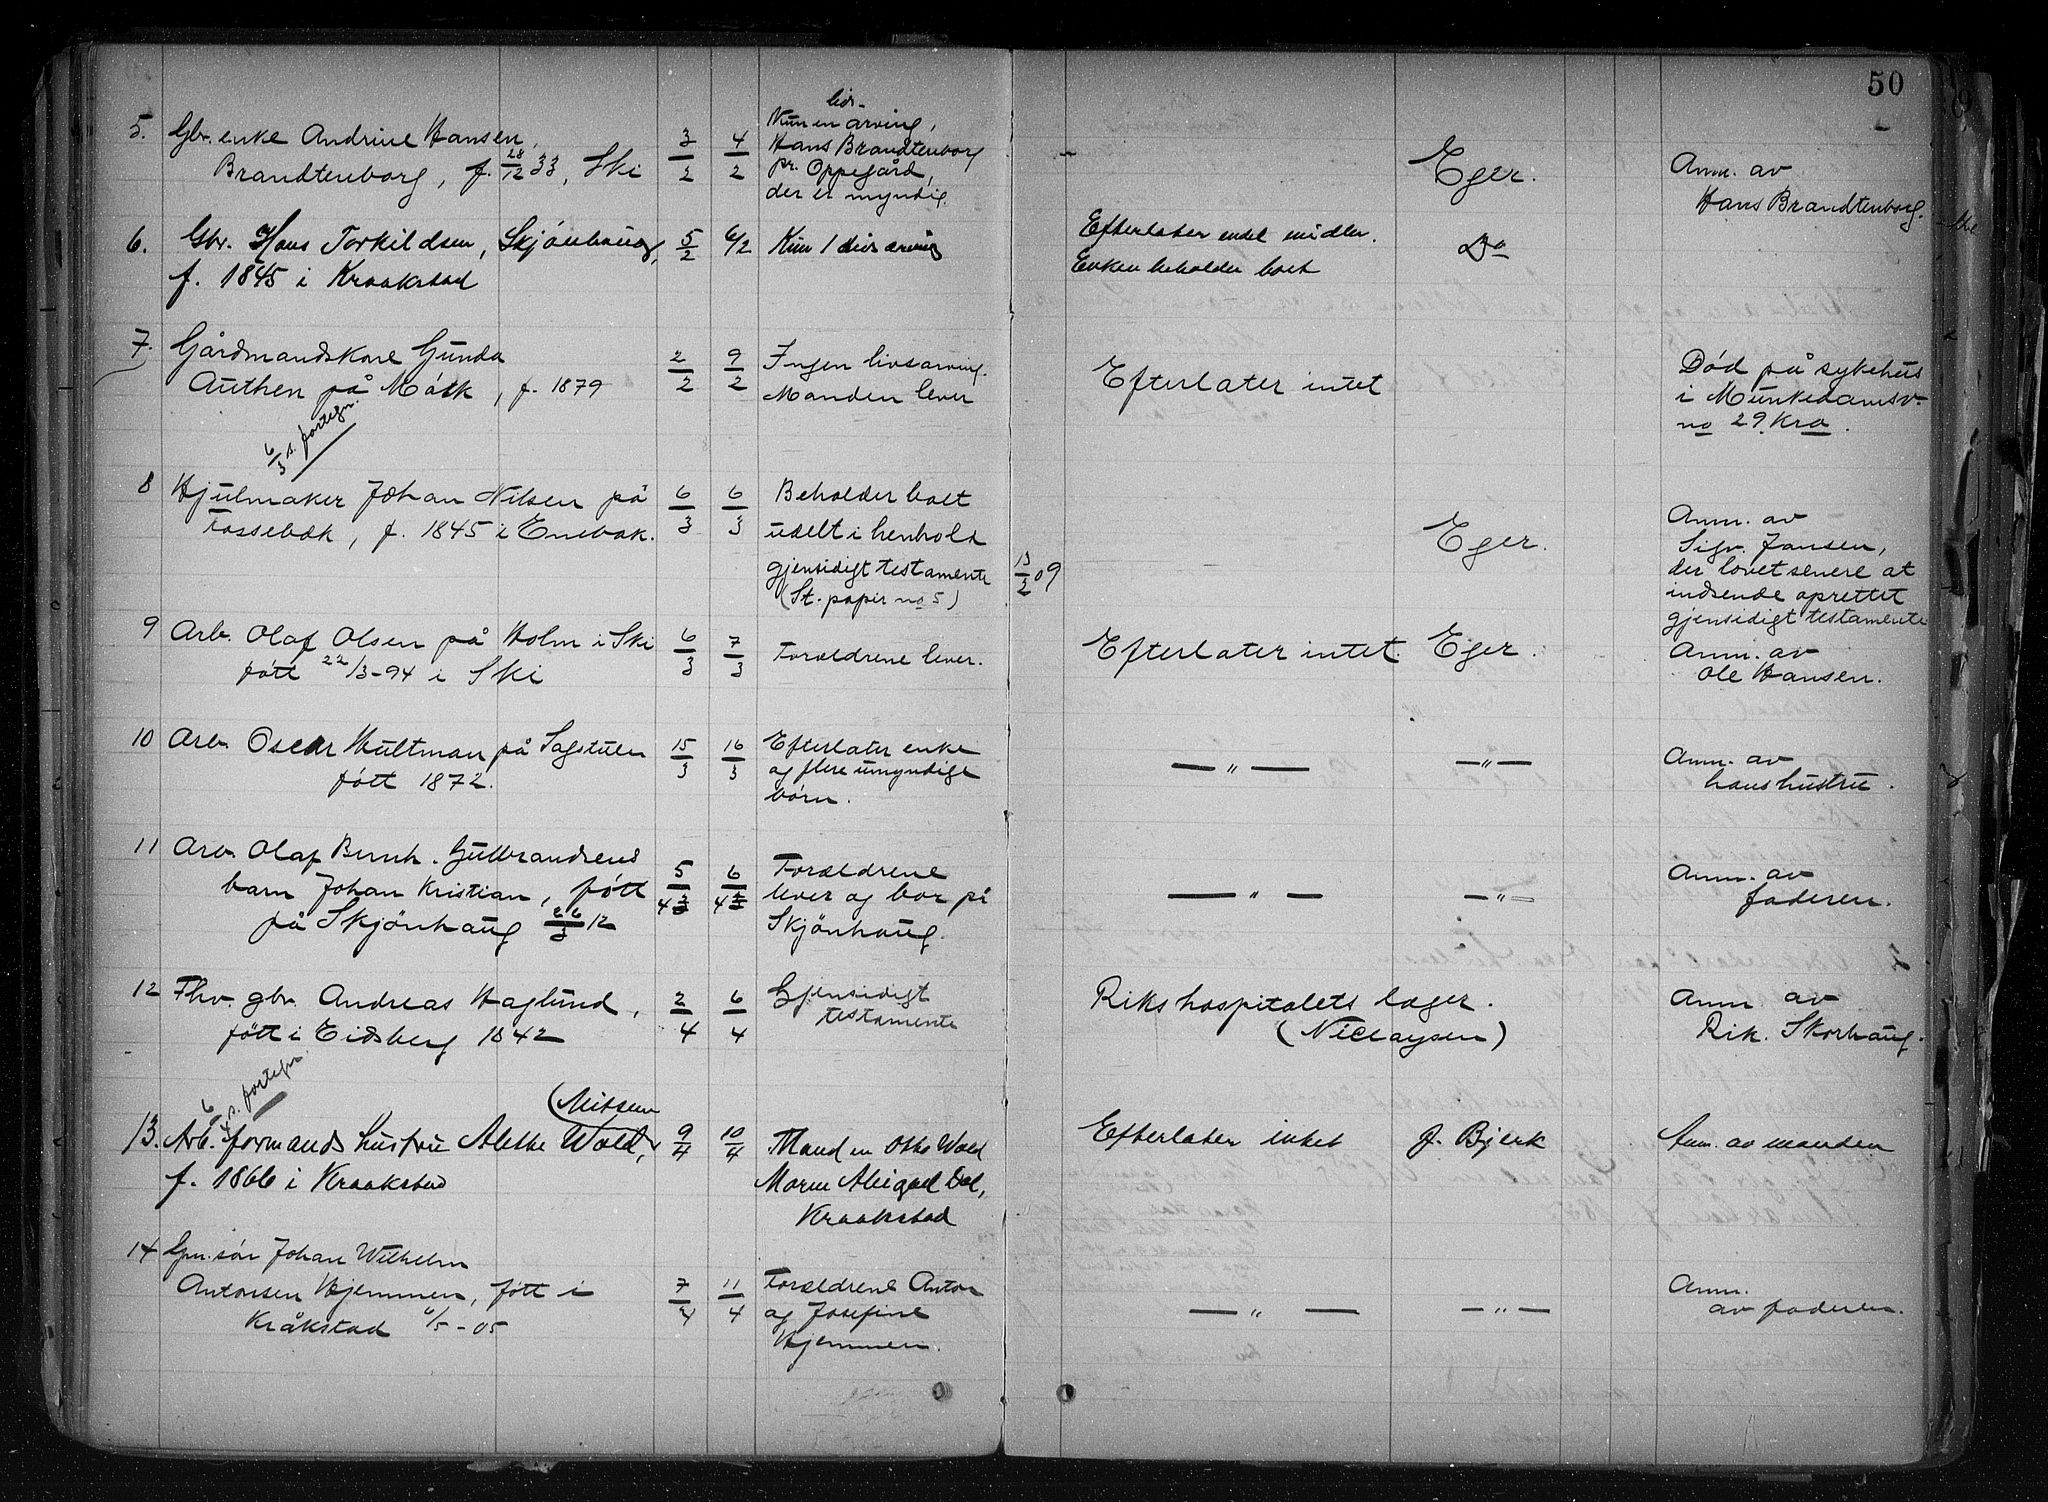 50
5. Gbr. enke Andrine Hansen,
Brandtenborg, f. 28/12 33, Ski
3/2 4/2
livs-
Kun en arving,
Hans Brandtenborg
pr. Oppegård,
der er myndig.
Eger.
Anm. av
Hans Brandtenborg.
6. Gbr. Hans Torkildsen, Skjönhaug,
f. 1845 i Kraakstad
5/2 6/2
Kun 1 livsarving
Efterlater endel midler.
Enken beholder boet
Do
7. Gårdmandskone Gunda
Authen på Mörk, f. 1879
2/2 9/2
Ingen livsarving.
Manden lever
Efterlater intet
Död på sykehus
i Munkedamsv.
no 29. Kra.
6/3 s. fortegn.
8 Hjulmaker Johan Nilsen på
Fossebæk, f. 1845 i Enebak.
6/3 6/3
Beholder boet
udelt i henhold
gjensidigt testamente
(St. papir no 5)
13/2 09
Eger.
Anm. av
Sigv. Jansen,
der lovet senere at
indsende oprettet
gjensidigt testamente
9 Arb. Olaf Olsen på Holm i Ski
fött 22/3-94 i Ski
6/3 7/3
Forældrene lever.
Efterlater intet. Eger.
Anm. av
Ole Hansen.
10 Arb. Oscar Hultman på Sagstuen
fött 1872.
15/3 16/3
Efterlater enke
og flere umyndige
börn.
— " — — " —
Anm. av
hans hustru.
11 Arb. Olaf Bernh. Gulbrandsens
barn Johan Kristian, fött
på Skjönhaug 26/3 12
5/4 6/4
Forældrene
lever og bor på
Skjönhaug.
— " — — " —
Anm. av
faderen.
12 Fhv. gbr. Andreas Haglund,
fött i Eidsberg 1842
2/4 6/4
Gjensidigt
testamente
Rikshospitalets læger.
(Niclaysen)
Anm av
Rik. Skorhaug.
6/4 s. fortegn
(Nilsen
13. Arb. formands hustru Alethe Wold,
f. 1866 i Kraakstad
9/4 10/4
Manden Otto Wold
Moren Abigael Dal,
Kraakstad
Efterlater intet J. Bjerk
Anm. av manden
14 Gm. sön Johan Wilhelm
Antonsen Hjemmen, fött i
Kråkstad 6/5-05
7/4 11/4
Forældrene Anton
og Josefine
Hjemmen.
— " — — " —
Anm.
av faderen.